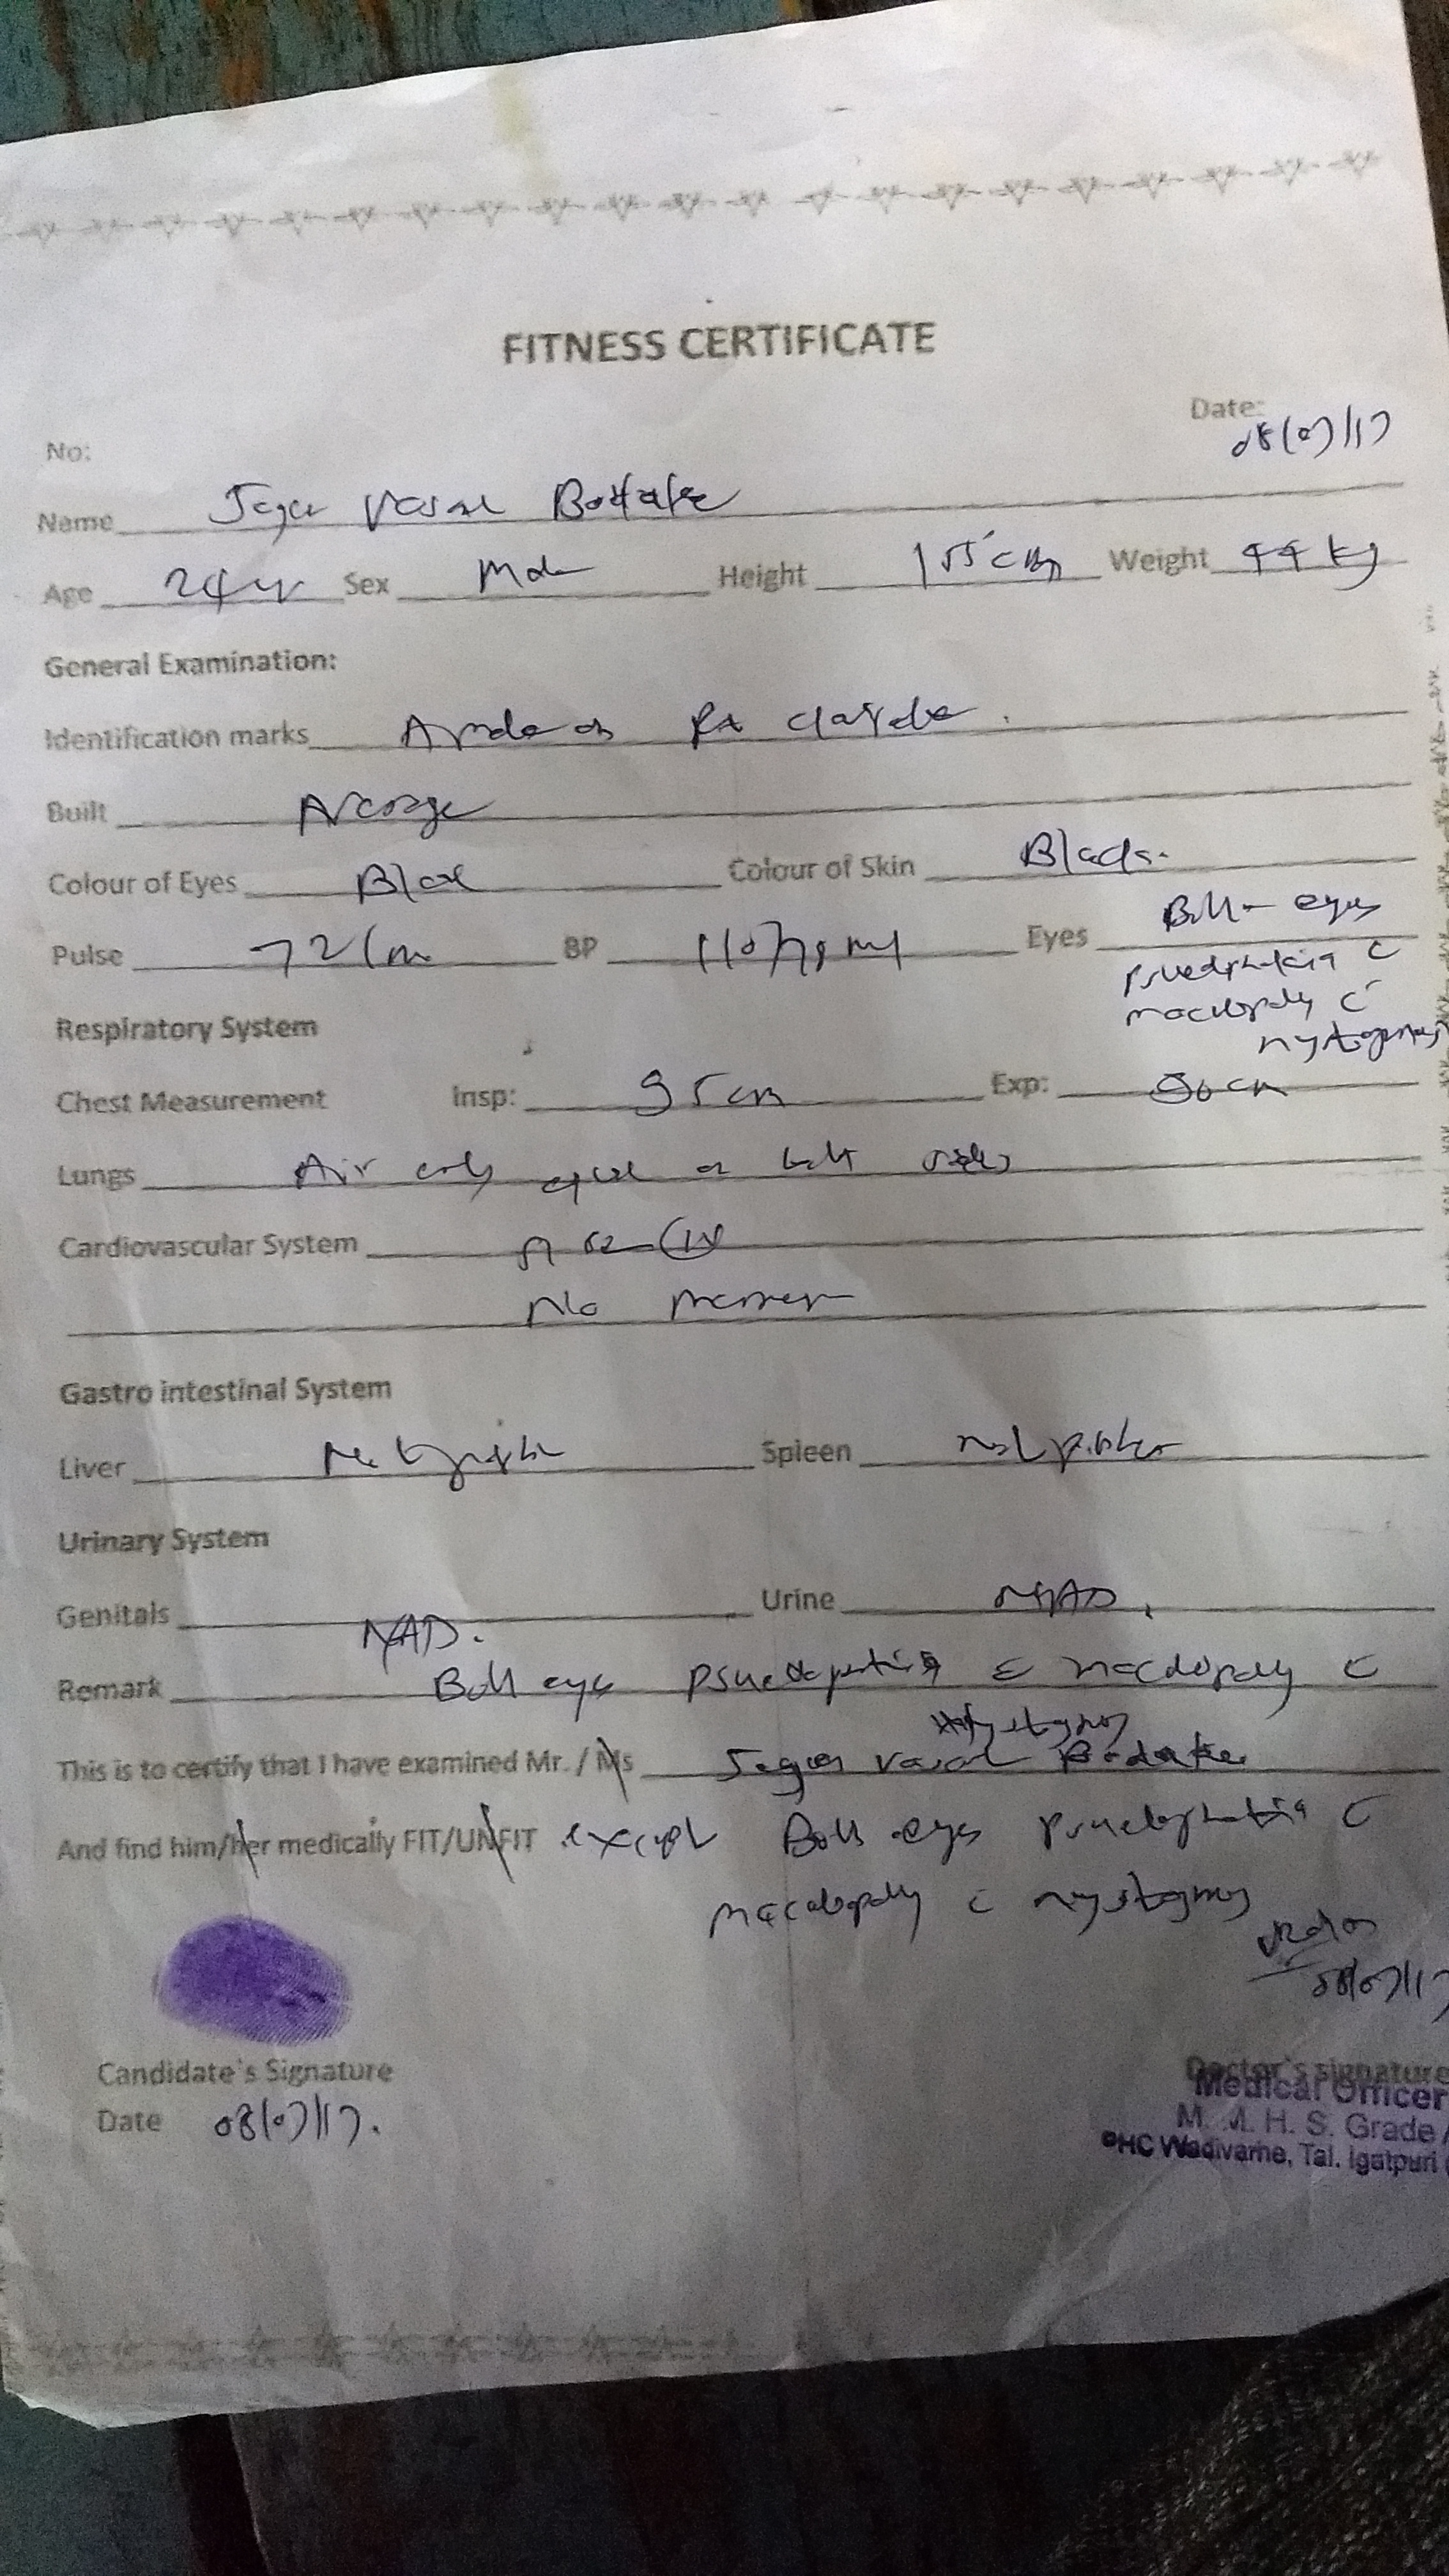 FITNESS CERTIFICATE
Date:
No: 08/07/17
Name Vasant
Age 24 yr Sex Male Height 155 cm Weight 44 kg
General Examination:
Identification marks on Rt
Built Average
Colour of Eyes Black Colour of Skin Black.
Pulse 72/m BP 110/ Eyes Both eyes
psuedphakia c
maculopathy c
Respiratory System nystagmus
Chest Measurement Insp: 95 cm Exp: 90 cm
Lungs Air entry equal on both sides
Cardiovascular System
No murmur
Gastro intestinal System
Liver Spleen not
Urinary System
Genitals NAD. Urine NAD.
Remark Both eyes c maculopathy c
nystagmus
This is to certify that I have examined Mr. / Ms Vasant
And find him/her medically FIT/UNFIT except Both eyes c
maculopathy c nystagmus
08/07/17
Candidate's Signature Doctor's signature
Medical Officer
Date 08/07/17. M. M. H. S. Grade
PHC Wadivarhe, Tal. Igatpuri